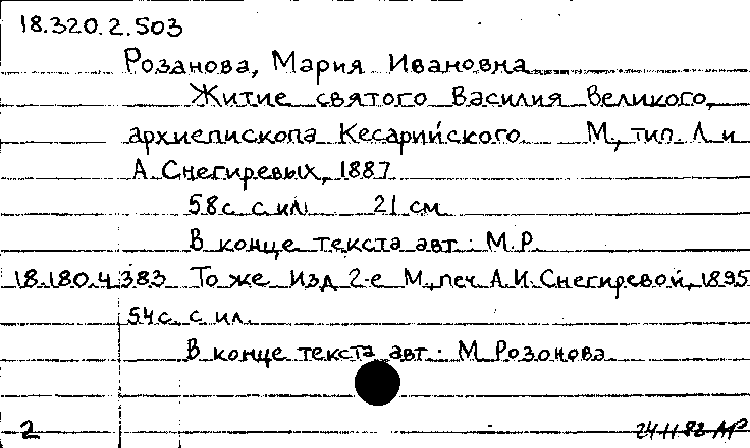 18.320.2.503
Розанова, Мария Ивановна
Житие святого Василия Великого,
архиепископа Кесарийского М., тип. Л. и
А. Снегиревых, 1887
58 с. с ил. 21 см
В конце текста авт.: М.Р.
18.180.4.383 То же Изд. 2-е М., печ. А.И. Снегиревой, 1895
54 с. с ил.
В конце текста авт.: М Розонова
2 24 11 82